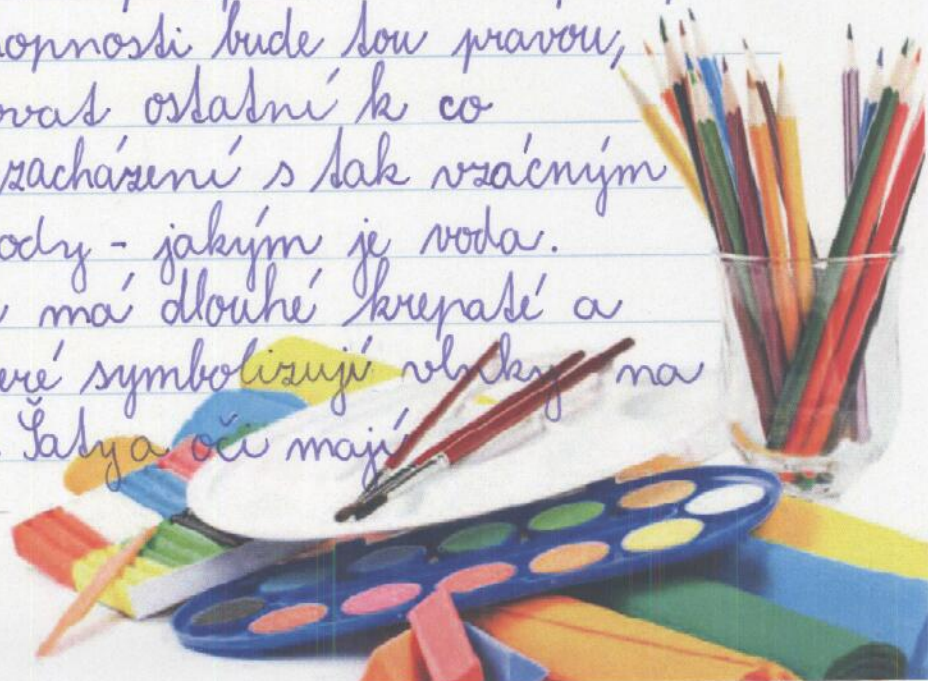 opnosti bude tou pravou,
ovat ostatní k co
zacházení s tak vzácným
ody - jakým je voda.
má dlouhé krepaté a
eré symbolizují vlnky na
Šaty a oči mají